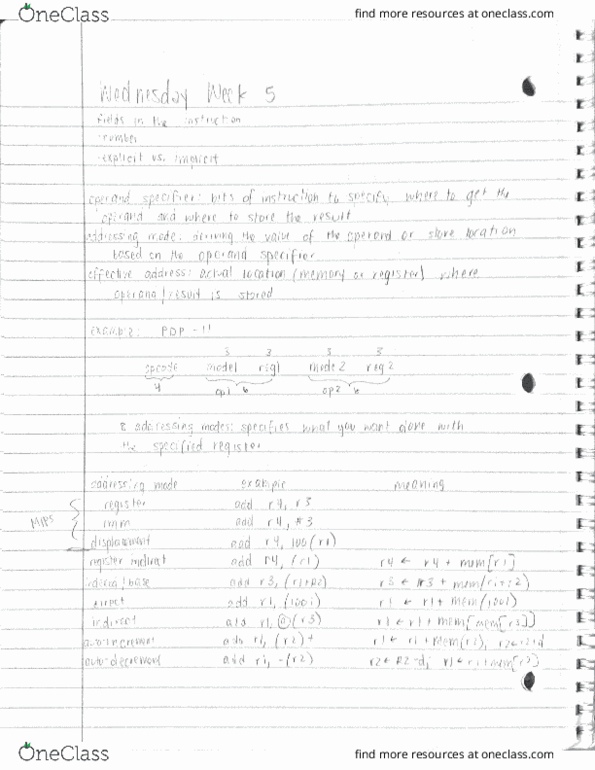 OneClass
find more resources at oneclass.com
Wednesday Week 5
fields in the instruction
-number
-explicit vs. implicit
operand specifier: bits of instruction to specify where to get the
operand and where to store the result
addressing mode: deriving the value of the operand or store location
based on the operand specifier
effective address: actual location (memory or register) where
operand/result is stored
EXAMPLE: PDP-11
3 3 3 3
opcode mode1 reg1 mode2 reg2
4 op1 6 op2 6
8 addressing modes: specifies what you want done with
the specified register
addressing mode example meaning
register add r4, r3
MIPS imm add r4, #3
displacement add r4, 100(r1)
register indirect add r4, (r1) r4 ← r4 + mem[r1]
indexed/base add r3, (r1+r2) r3 ← r3 + mem(r1+r2)
direct add r1, (1001) r1 ← r1 + mem(1001)
indirect add r1, @(r3) r1 ← r1 + mem[mem[r3]]
auto-increment add r1, (r2)+ r1 ← r1 + mem(r2), r2←r2+d
auto-decrement add r1, -(r2) r2 ← r2-d; r1 ← r1+mem[r2]
OneClass
find more resources at oneclass.com